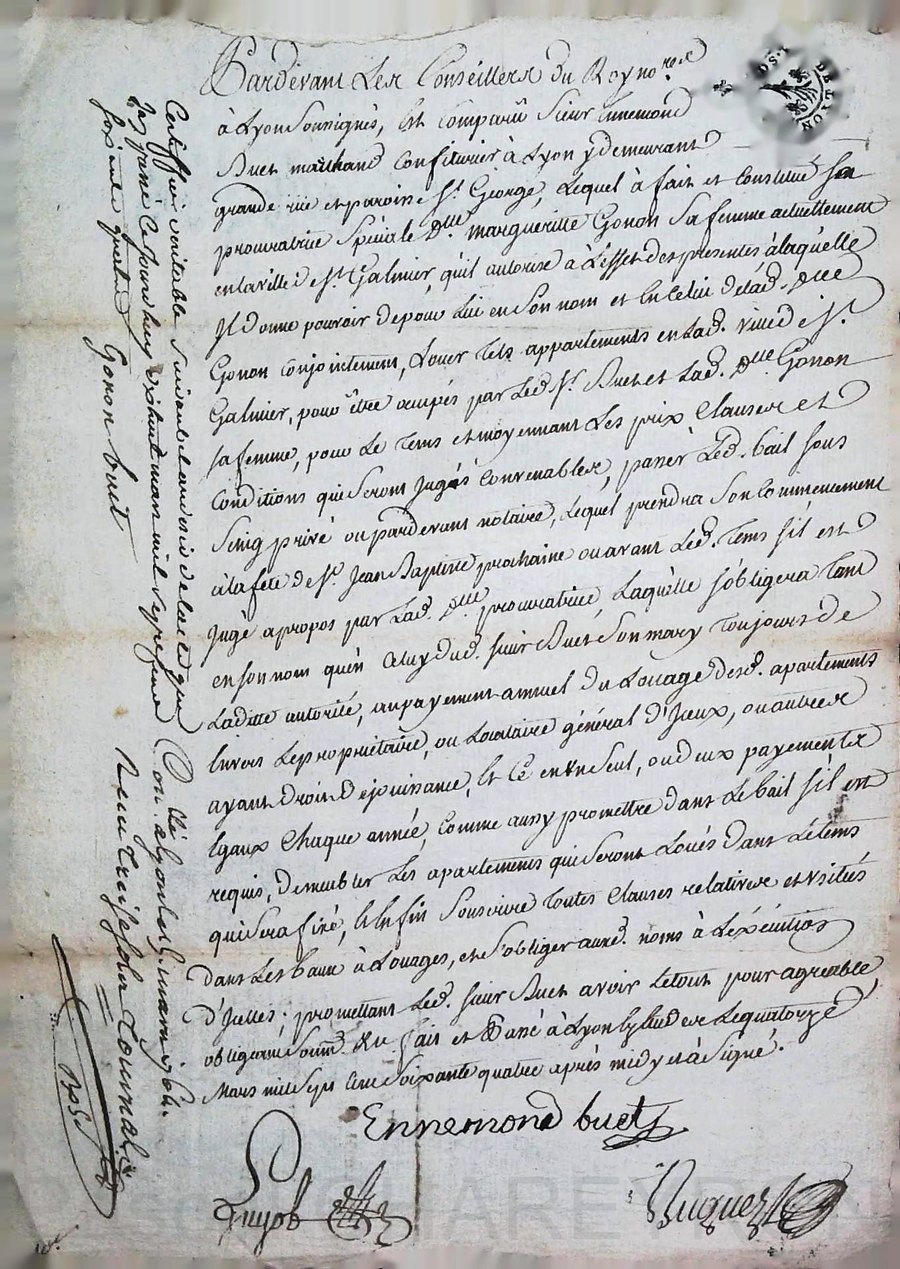 Pardevant Les Conseillers du Roy no.res
à Lyon Soussignés, Est Comparu Sieur Ennemond
Buet marchand Confiturier à Lyon y demeurant
grande rüe et paroisse St. George, Lequel à fait et Constitué Sa
procuratrice Spéciale Dlle. margueritte Gonon Sa femme actuellement
en la ville de St. Galmier, qu'il autorise à L'effet des presentes à laquelle
Il donne pouvoir de pour Lui en Son nom et En Celui de lad. Dlle
Gonon Conjointement, Louer tels appartements en Lad. ville de St.
Galmier, pour être occupés par Led. Sr. Buet et Lad. Dlle Gonon
sa femme, pour Le tems et moyennant Les prix Clauses et
Conditions qui Seront Jugés Convenables, passer Led. bail sous
Seing privé ou pardevant notaire, Lequel prendra Son Commencement
à la fête de St. Jean Baptiste prochaine ou avant Led. tems s'il est
Jugé apropos par Lad. Dlle procuratrice, Laquelle s'obligera tant
en son nom qu'en Celuy dud. sieur Buet Son mary toujours de
Laditte autorité, au payement annuel du Louage desd. apartements
Envers Le propriétaire, ou Locataire général d'Iceux, ou autres
ayant Droit De jouissance, Et Ce en un Seul, ou deux payements
Egaux Chaque année, Comme aussy promettre dans Le bail s'il est
requis, De meubler Les apartements qui Seront Loués dans Le tems
qui Sera fixé, et Enfin Souscrire toutes Clauses relatives et usités
dans Les baux à Louages, et s'obliger auxd. noms à L'éxécution
d'Icelles; promettant Led. sieur Buet avoir Le tout pour agreable
obligeant Soumd. &a. fait et Passé à Lyon Ez Etudes Le quatorze
Mars mil Sept Cent Soixante quatre après midy et à Signé.
Ennemond buet
Certiffié véritable Suivant l'acte de
ce jourd'huy huit mars mil sept
Gonon buet
Con.lé à Lyon le 14. mars 1764.
Reçu treize sols